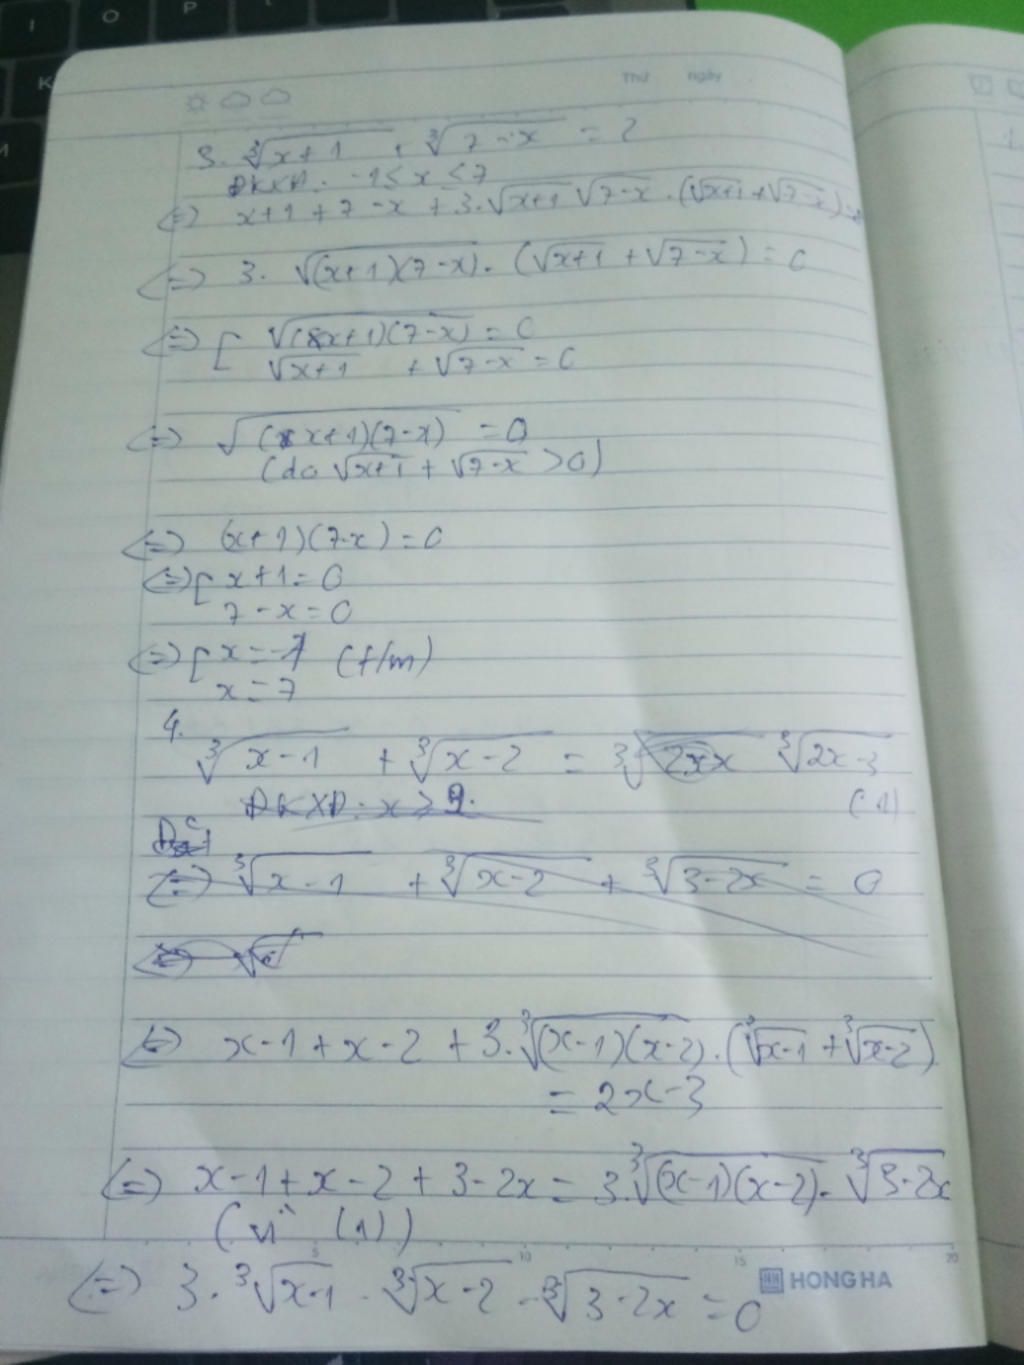 Thứ ngày
3. ∛(x+1) + ∛(7-x) = 2
ĐKXĐ: -1 ≤ x ≤ 7
⇔ x+1+7-x+3.√(x+1) √(7-x).(√(x+1)+√(7-x))=
⇔ 3. √((x+1)(7-x)). (√(x+1) + √(7-x)) = 0
⇔ [ √((x+1)(7-x)) = 0
√(x+1) + √(7-x) = 0
⇔ √((x+1)(7-x)) = 0
(do √(x+1) + √(7-x) > 0)
⇔ (x+1)(7-x) = 0
⇔ [ x+1 = 0
7-x = 0
⇔ [ x = -1 (t/m)
x = 7
4.
∛(x-1) + ∛(x-2) = ∛(2x-3)
ĐKXĐ: x ≥
(1)
⇔ ∛(x-1) + ∛(x-2) + ∛(3-2x) = 0
⇔ x-1+x-2+3.∛((x-1)(x-2)).(∛(x-1)+∛(x-2))
= 2x-3
⇔ x-1+x-2+3-2x = 3.∛((x-1)(x-2)).∛(3-2x)
(vì (1))
⇔ 3.∛(x-1).∛(x-2).∛(3-2x) = 0
5 10 15 20
HONG HA